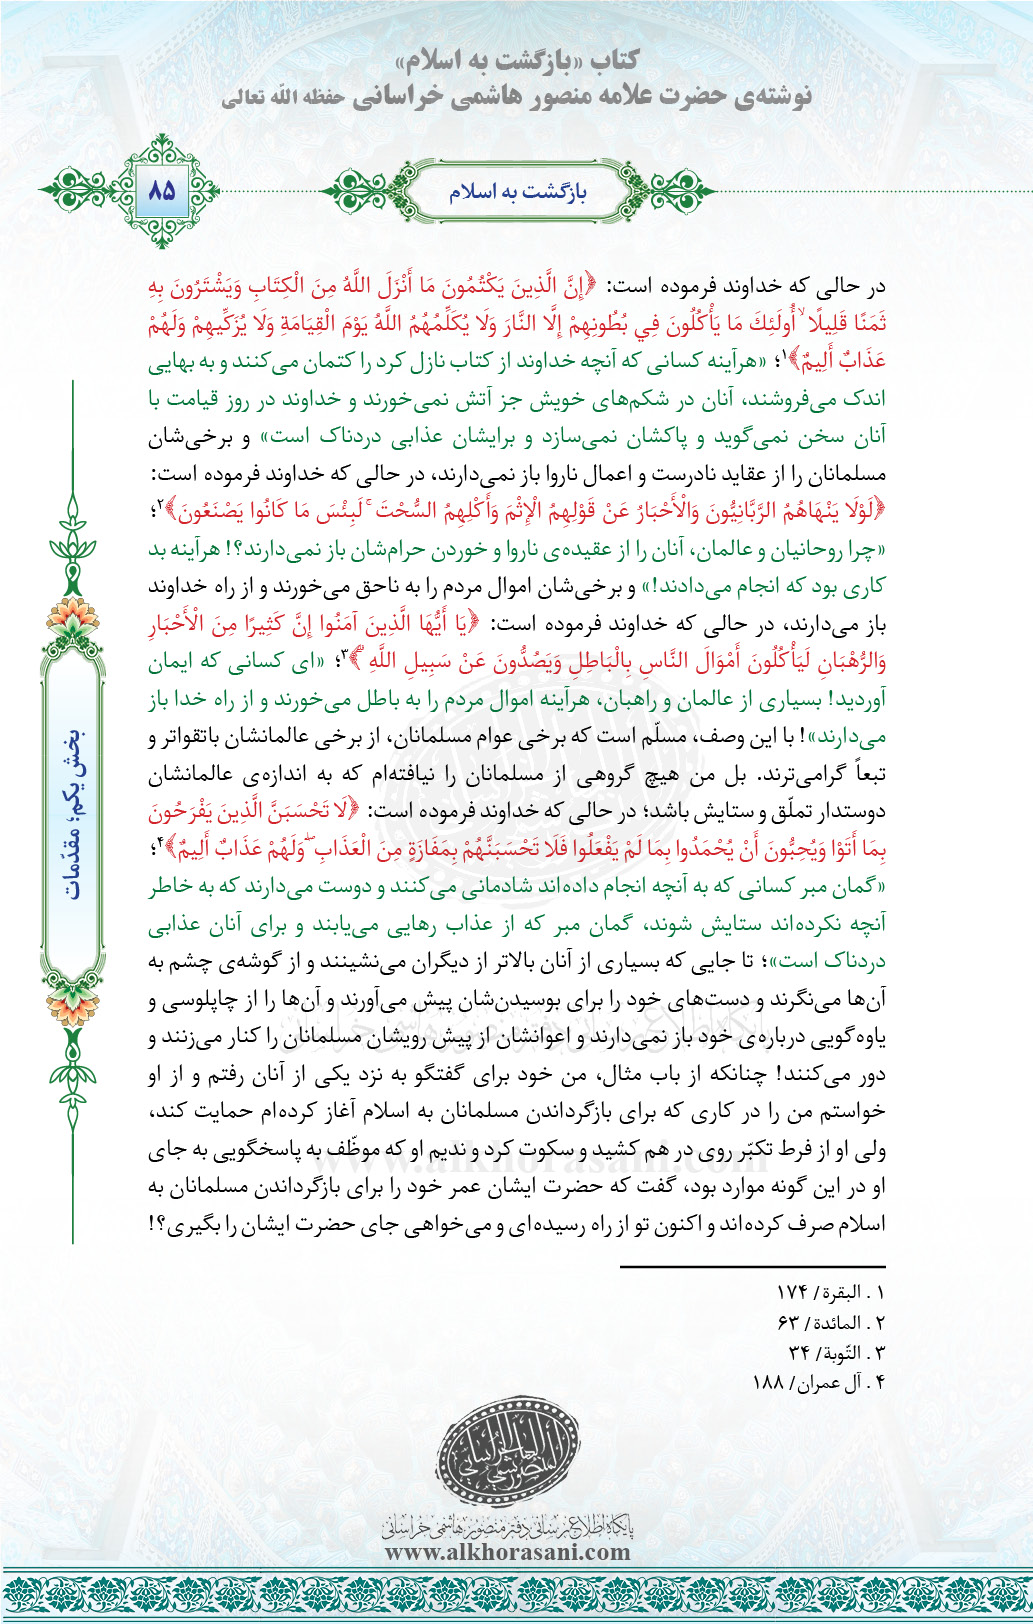 کتاب «بازگشت به اسلام»
نوشته‌ی حضرت علامه منصور هاشمی خراسانی حفظه الله تعالی
بازگشت به اسلام
۸۵
در حالی که خداوند فرموده است: ﴿إِنَّ الَّذِينَ يَكْتُمُونَ مَا أَنْزَلَ اللَّهُ مِنَ الْكِتَابِ وَيَشْتَرُونَ بِهِ
ثَمَنًا قَلِيلًا ۙ أُولَئِكَ مَا يَأْكُلُونَ فِي بُطُونِهِمْ إِلَّا النَّارَ وَلَا يُكَلِّمُهُمُ اللَّهُ يَوْمَ الْقِيَامَةِ وَلَا يُزَكِّيهِمْ وَلَهُمْ
عَذَابٌ أَلِيمٌ﴾۱؛ «هرآینه کسانی که آنچه خداوند از کتاب نازل کرد را کتمان می‌کنند و به بهایی
اندک می‌فروشند، آنان در شکم‌های خویش جز آتش نمی‌خورند و خداوند در روز قیامت با
آنان سخن نمی‌گوید و پاکشان نمی‌سازد و برایشان عذابی دردناک است» و برخی‌شان
مسلمانان را از عقاید نادرست و اعمال ناروا باز نمی‌دارند، در حالی که خداوند فرموده است:
﴿لَوْلَا يَنْهَاهُمُ الرَّبَّانِيُّونَ وَالْأَحْبَارُ عَنْ قَوْلِهِمُ الْإِثْمَ وَأَكْلِهِمُ السُّحْتَ ۚ لَبِئْسَ مَا كَانُوا يَصْنَعُونَ﴾۲؛
«چرا روحانیان و عالمان، آنان را از عقیده‌ی ناروا و خوردن حرام‌شان باز نمی‌دارند؟! هرآینه بد
کاری بود که انجام می‌دادند!» و برخی‌شان اموال مردم را به ناحق می‌خورند و از راه خداوند
باز می‌دارند، در حالی که خداوند فرموده است: ﴿يَا أَيُّهَا الَّذِينَ آمَنُوا إِنَّ كَثِيرًا مِنَ الْأَحْبَارِ
وَالرُّهْبَانِ لَيَأْكُلُونَ أَمْوَالَ النَّاسِ بِالْبَاطِلِ وَيَصُدُّونَ عَنْ سَبِيلِ اللَّهِ ۗ﴾۳؛ «ای کسانی که ایمان
آوردید! بسیاری از عالمان و راهبان، هرآینه اموال مردم را به باطل می‌خورند و از راه خدا باز
می‌دارند»! با این وصف، مسلّم است که برخی عوام مسلمانان، از برخی عالمانشان باتقواتر و
تبعاً گرامی‌ترند. بل من هیچ گروهی از مسلمانان را نیافته‌ام که به اندازه‌ی عالمانشان
دوستدار تملّق و ستایش باشد؛ در حالی که خداوند فرموده است: ﴿لَا تَحْسَبَنَّ الَّذِينَ يَفْرَحُونَ
بِمَا أَتَوْا وَيُحِبُّونَ أَنْ يُحْمَدُوا بِمَا لَمْ يَفْعَلُوا فَلَا تَحْسَبَنَّهُمْ بِمَفَازَةٍ مِنَ الْعَذَابِ ۖ وَلَهُمْ عَذَابٌ أَلِيمٌ﴾۴؛
«گمان مبر کسانی که به آنچه انجام داده‌اند شادمانی می‌کنند و دوست می‌دارند که به خاطر
آنچه نکرده‌اند ستایش شوند، گمان مبر که از عذاب رهایی می‌یابند و برای آنان عذابی
دردناک است»؛ تا جایی که بسیاری از آنان بالاتر از دیگران می‌نشینند و از گوشه‌ی چشم به
آن‌ها می‌نگرند و دست‌های خود را برای بوسیدن‌شان پیش می‌آورند و آن‌ها را از چاپلوسی و
یاوه‌گویی درباره‌ی خود باز نمی‌دارند و اعوانشان از پیش رویشان مسلمانان را کنار می‌زنند و
دور می‌کنند! چنانکه از باب مثال، من خود برای گفتگو به نزد یکی از آنان رفتم و از او
خواستم من را در کاری که برای بازگرداندن مسلمانان به اسلام آغاز کرده‌ام حمایت کند،
ولی او از فرط تکبّر روی در هم کشید و سکوت کرد و ندیم او که موظّف به پاسخگویی به جای
او در این گونه موارد بود، گفت که حضرت ایشان عمر خود را برای بازگرداندن مسلمانان به
اسلام صرف کرده‌اند و اکنون تو از راه رسیده‌ای و می‌خواهی جای حضرت ایشان را بگیری؟!
بخش یکم؛ مقدّمات
۱ . البقرة/ ۱۷۴
۲ . المائدة/ ۶۳
۳ . التّوبة/ ۳۴
۴ . آل عمران/ ۱۸۸
المنصور الهاشمي الخراساني
پایگاه اطلاع‌رسانی دفتر منصور هاشمی خراسانی
www.alkhorasani.com